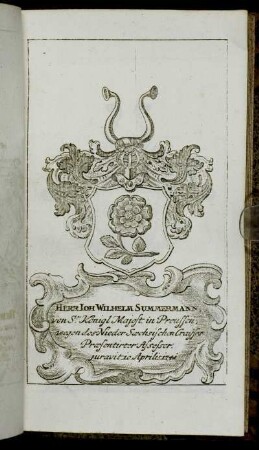 HERR IOH WILHELM SUMMERMANN
von Sr Königl Majest in Preussen
wegen des Nieder Sæchsischn Craisses
Præsentirter Assessor
juravit
Aprilis